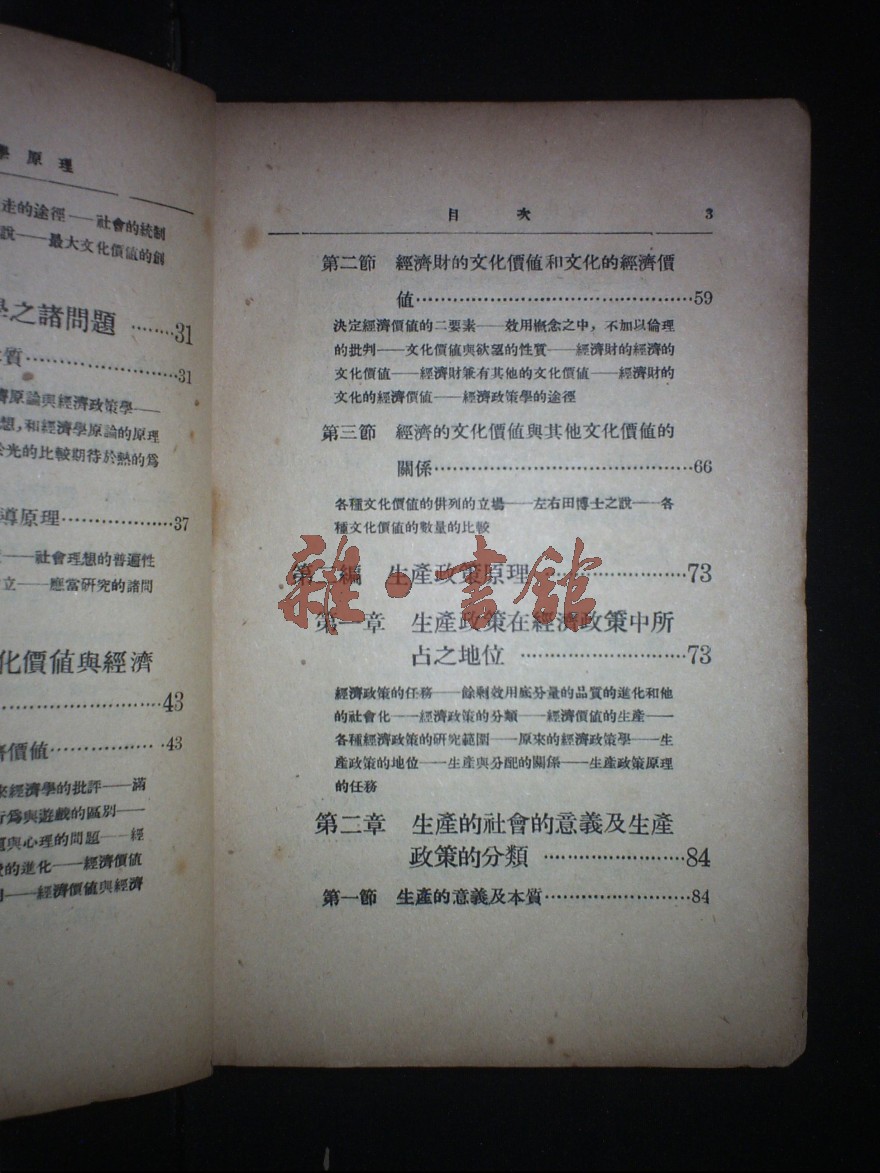 學原理
走的途徑——社會的統制
說——最大文化價値的創
學之諸問題 ……31
本質……………31
濟原論與經濟政策學——
想，和經濟學原論的原理
光的比較期待於熱的爲
導原理……………37
——社會理想的普遍性
立——應當研究的諸問
化價値與經濟
……………43
濟價値……………43
來經濟學的批評——滿
行爲與遊戲的區別——
題與心理的問題——經
的進化——經濟價値
——經濟價値與經濟
目 次 3
第二節 經濟財的文化價値和文化的經濟價
値……………………………………59
決定經濟價値的二要素——效用槪念之中，不加以倫理
的批判——文化價値與欲望的性質——經濟財的經濟的
文化價値——經濟財兼有其他的文化價値——經濟財的
文化的經濟價値——經濟政策學的途徑
第三節 經濟的文化價値與其他文化價値的
關係…………………………………66
各種文化價値的併列的立場——左右田博士之說——各
種文化價値的數量的比較
第二編 生產政策原理…………………73
第一章 生產政策在經濟政策中所
占之地位……………………73
經濟政策的任務——餘剩效用底分量的品質的進化和他
的社會化——經濟政策的分類——經濟價値的生產——
各種經濟政策的研究範圍——原來的經濟政策學——生
產政策的地位——生產與分配的關係——生產政策原理
的任務
第二章 生產的社會的意義及生產
政策的分類…………………84
第一節 生產的意義及本質…………………84
雜·書館